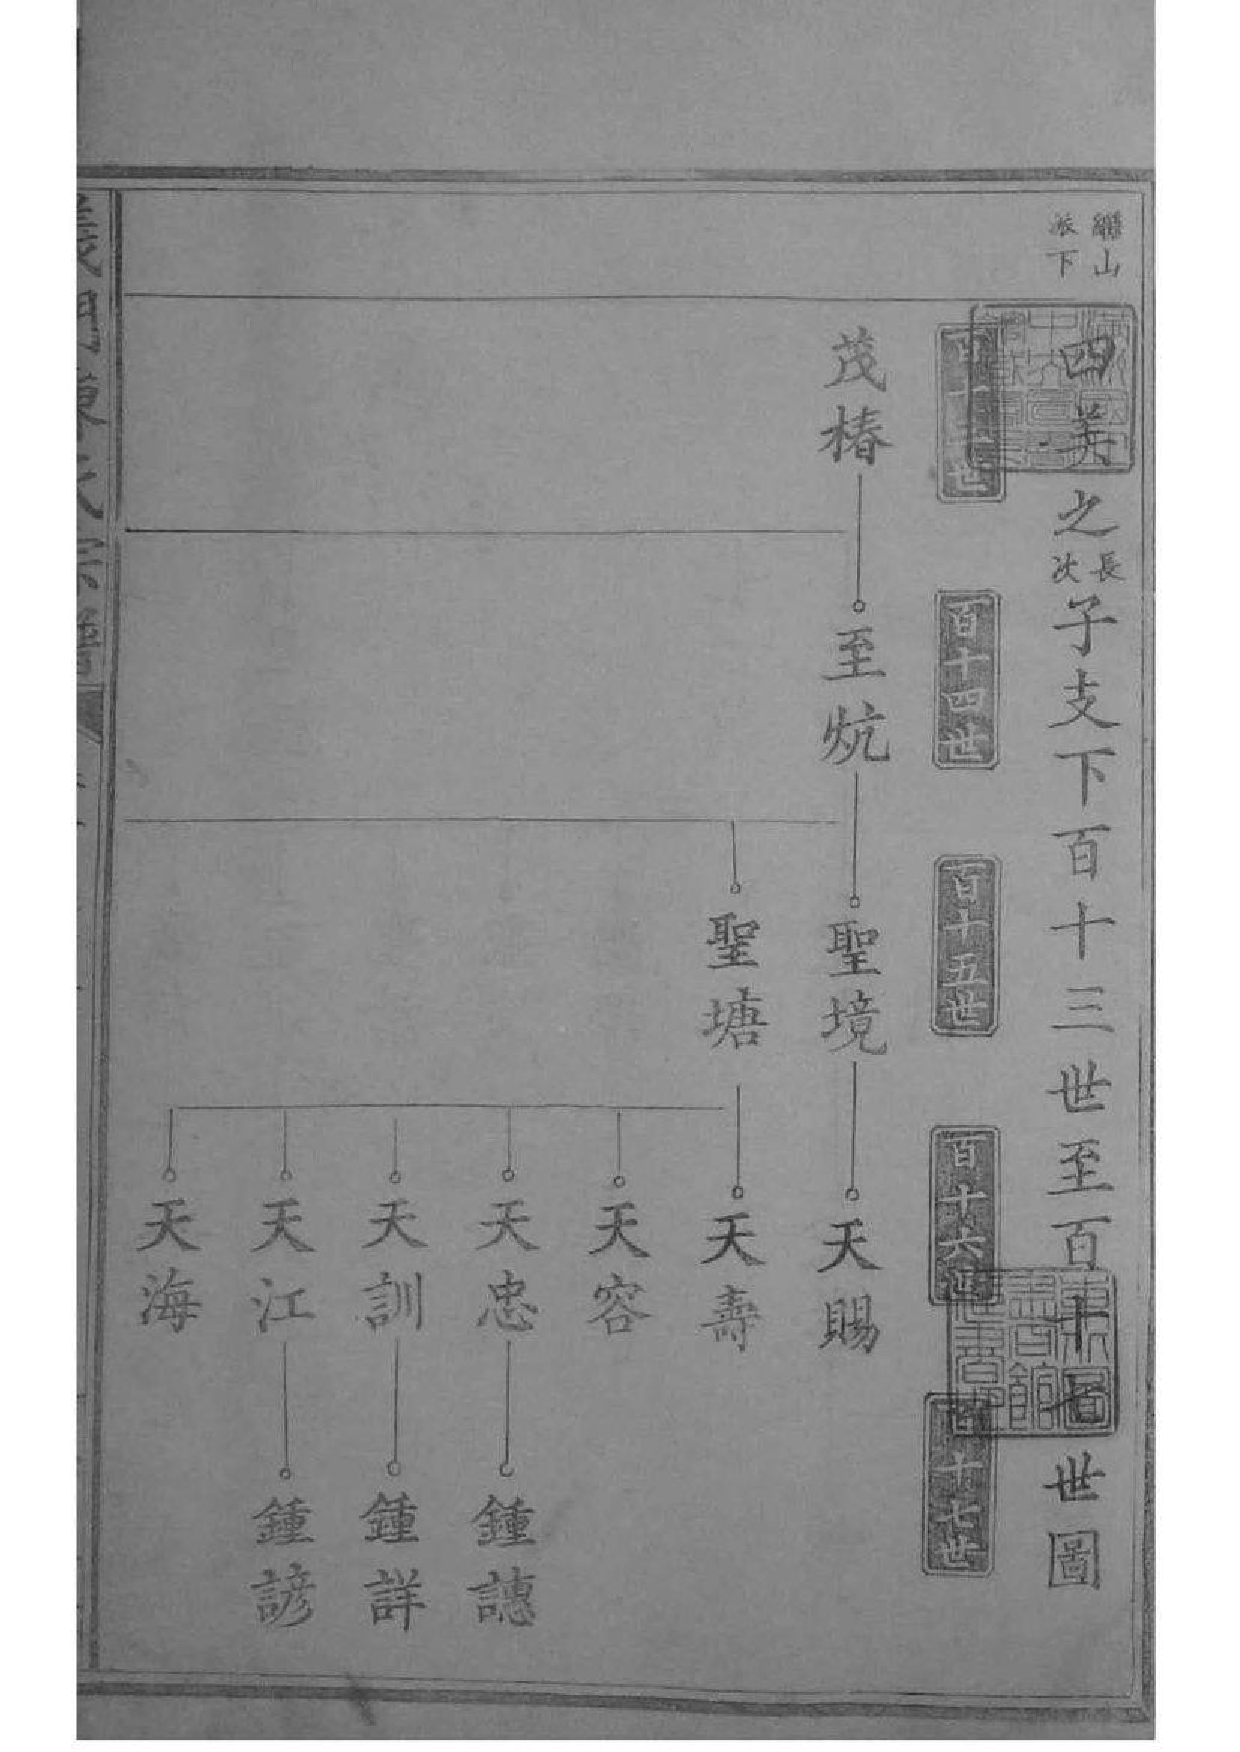 繼山
派下
四美之長次子支下百十三世至百十七世圖
百十三世
百十四世
百十五世
百十六世
百十七世
茂椿
至炕
聖境
聖塘
天賜
天壽
天容
天忠
天訓
天江
天海
鍾譓
鍾詳
鍾諺
義門陳氏宗譜